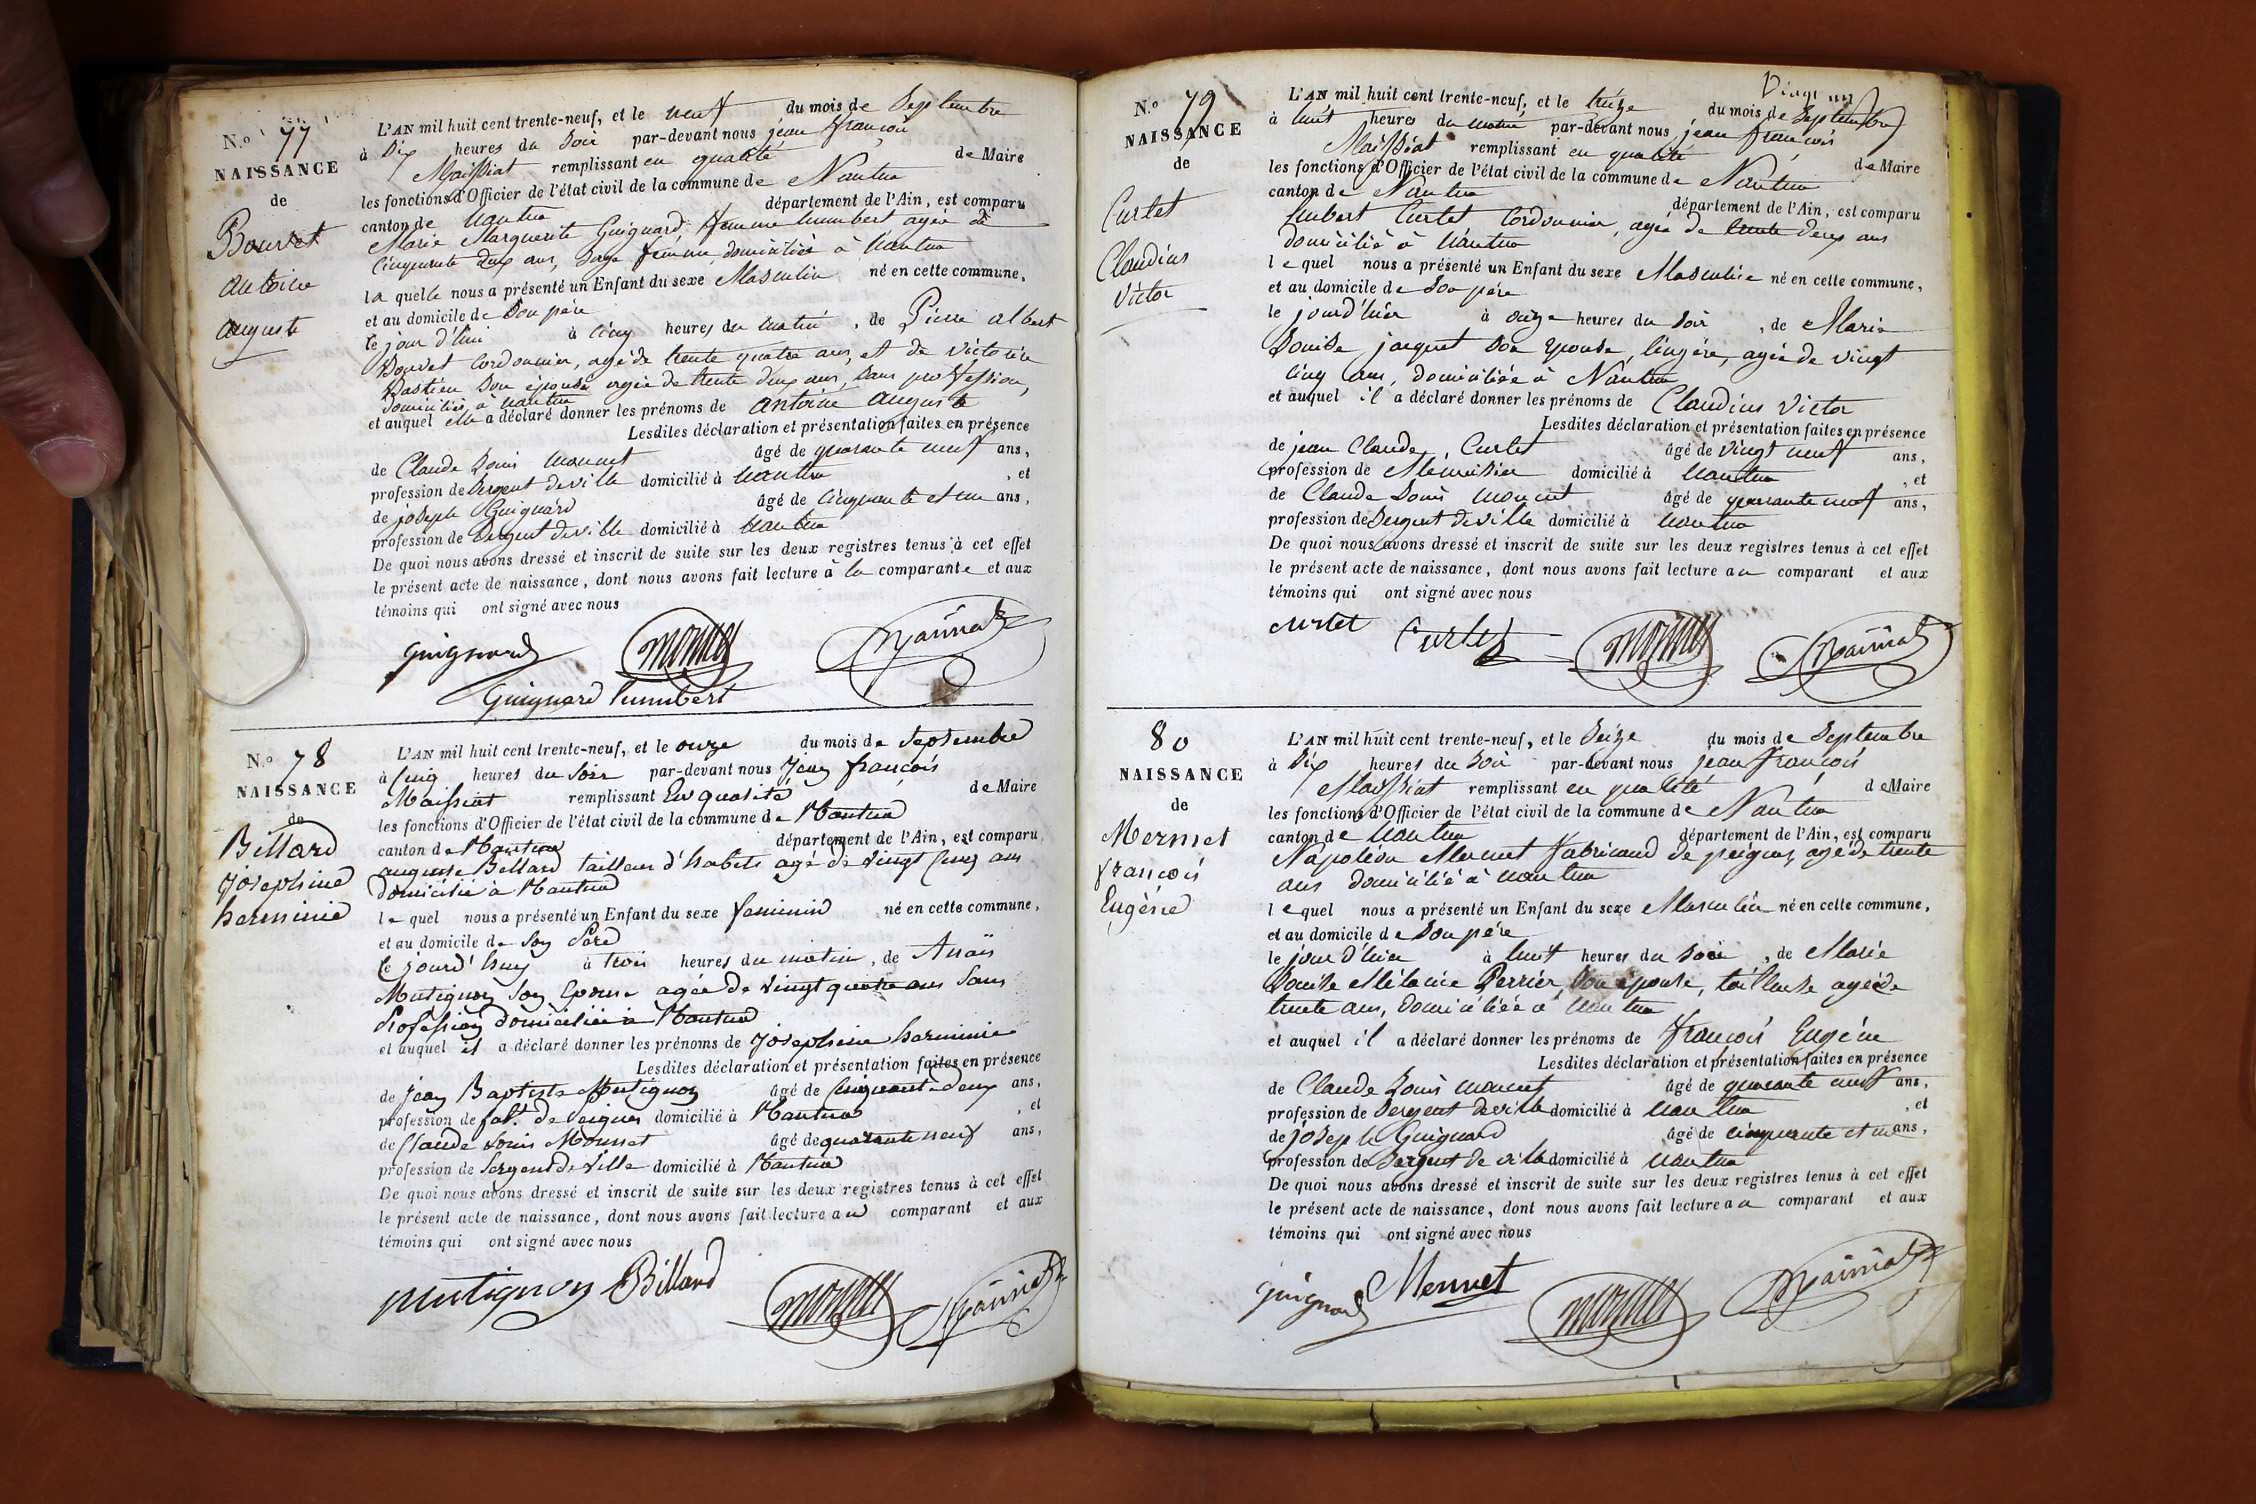 N.º 77
NAISSANCE
de
Bouvet
antoine
auguste
L'AN mil huit cent trente-neuf, et le neuf du mois de Septembre
à Dix heures du Soir par-devant nous jean françois
Maissiat remplissant en qualité de Maire
les fonctions d'Officier de l'état civil de la commune de Nantua
canton de Nantua département de l'Ain, est comparu
Marie Marguerite Guignard femme humbert agée de
Cinquante deux ans, Sage femme, domiciliée à Nantua
la quelle nous a présenté un Enfant du sexe Masculin né en cette commune,
et au domicile de Son père
le jour d'hui à cinq heures du matin, de Pierre albert
Bouvet Cordonnier, agé de trente quatre ans, et de victoire
Bastien Son épouse agée de trente deux ans, Sans profession,
domiciliés à nantua
et auquel elle a déclaré donner les prénoms de antoine auguste
Lesdites déclaration et présentation faites en présence
de Claude Louis mounet âgé de quarante neuf ans,
profession de Sergent de ville domicilié à nantua , et
de joseph Guignard âgé de Cinquante et un ans,
profession de Sergent de ville domicilié à nantua
De quoi nous avons dressé et inscrit de suite sur les deux registres tenus à cet effet
le présent acte de naissance, dont nous avons fait lecture à la comparante et aux
témoins qui ont signé avec nous
guignard mounet Maissiat
guignard humbert
N.º 78
NAISSANCE
de
Billard
Josephine
herminie
L'AN mil huit cent trente-neuf, et le onze du mois de Septembre
à Cinq heures du Soir par-devant nous Jean françois
Maissiat remplissant En qualité de Maire
les fonctions d'Officier de l'état civil de la commune de Nantua
canton de Nantua département de l'Ain, est comparu
auguste Billard tailleur d'habits agé de vingt cinq ans
domicilié à Nantua
le quel nous a présenté un Enfant du sexe feminin né en cette commune,
et au domicile de Son Père
le jourd'huy à trois heures du matin, de Anaïs
Mutignon Son Epouse agée de vingt quatre ans Sans
Profession domiciliée à Nantua
et auquel il a déclaré donner les prénoms de Josephine herminie
Lesdites déclaration et présentation faites en présence
de Jean Baptiste Mutignon âgé de Cinquante deux ans,
profession de fab.t de Peignes domicilié à Nantua , et
de Claude Louis Mounet âgé de quarante neuf ans,
profession de Sergent de Ville domicilié à Nantua
De quoi nous avons dressé et inscrit de suite sur les deux registres tenus à cet effet
le présent acte de naissance, dont nous avons fait lecture au comparant et aux
témoins qui ont signé avec nous
mutignon Billard mounet Maissiat
N.º 79
NAISSANCE
de
Curtet
Claudius
Victor
L'AN mil huit cent trente-neuf, et le treize du mois de Septembre
à huit heures du matin par-devant nous jean françois
Maissiat remplissant en qualité de Maire
les fonctions d'Officier de l'état civil de la commune de Nantua
canton de Nantua département de l'Ain, est comparu
humbert Curtet Cordonnier, agé de trente deux ans
domicilié à Nantua
le quel nous a présenté un Enfant du sexe Masculin né en cette commune,
et au domicile de Son père
le jourd'hier à onze heures du Soir , de Marie
Louise jacquet Son épouse, lingère, agée de vingt
cinq ans, domiciliée à Nantua
et auquel il a déclaré donner les prénoms de Claudius Victor
Lesdites déclaration et présentation faites en présence
de jean Claude Curtet âgé de vingt neuf ans,
profession de Menuisier domicilié à nantua , et
de Claude Louis mounet âgé de quarante neuf ans,
profession de Sergent de ville domicilié à nantua
De quoi nous avons dressé et inscrit de suite sur les deux registres tenus à cet effet
le présent acte de naissance, dont nous avons fait lecture au comparant et aux
témoins qui ont signé avec nous
curtet Curtet mounet Maissiat
80
NAISSANCE
de
Mermet
françois
Eugène
L'AN mil huit cent trente-neuf, et le Seize du mois de Septembre
à Dix heures du Soir par-devant nous jean françois
Maissiat remplissant en qualité de Maire
les fonctions d'Officier de l'état civil de la commune de Nantua
canton de Nantua département de l'Ain, est comparu
Napoléon Mermet fabricant de peignes, agé de trente
ans domicilié à nantua
le quel nous a présenté un Enfant du sexe Masculin né en cette commune,
et au domicile de Son père
le jour d'hier à huit heures du Soir , de Marie
Louise Mélanie Perrier Son épouse, tailleuse agée de
trente ans, domiciliée à nantua
et auquel il a déclaré donner les prénoms de françois Eugène
Lesdites déclaration et présentation faites en présence
de Claude Louis mounet âgé de quarante neuf ans,
profession de Sergent de ville domicilié à nantua , et
de joseph Guignard âgé de cinquante et un ans,
profession de Sergent de ville domicilié à nantua
De quoi nous avons dressé et inscrit de suite sur les deux registres tenus à cet effet
le présent acte de naissance, dont nous avons fait lecture au comparant et aux
témoins qui ont signé avec nous
guignard Mermet mounet Maissiat